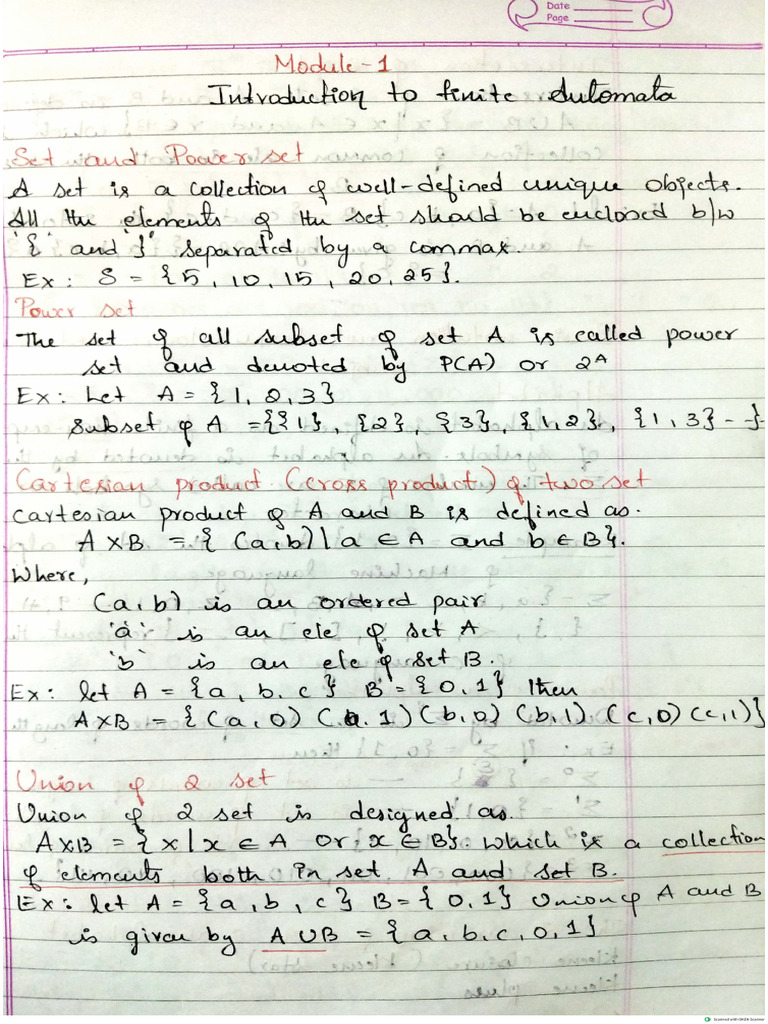 Date
Page
Module-1
Introduction to finite Automata
Set and Power set
A set is a collection of well-defined unique objects.
All the elements of the set should be enclosed b/w
'{' and '}' separated by a commas.
Ex: S = {5, 10, 15, 20, 25}.
Power set
The set of all subset of set A is called power
set and denoted by P(A) or 2ᴬ
Ex: Let A = {1, 2, 3}
Subset of A = {{1}, {2}, {3}, {1, 2}, {1, 3} - -}
Cartesian product (cross product) of two set
Cartesian product of A and B is defined as.
A X B = { (a,b) | a ∈ A and b ∈ B}.
Where,
(a,b) is an ordered pair
'a' is an ele of set A
'b' is an ele of set B.
Ex: let A = {a, b, c} B = {0, 1} then
A X B = {(a, 0) (a, 1) (b, 0) (b, 1) (c, 0) (c, 1)}
Union of 2 set
Union of 2 set is designed as.
A X B = { x | x ∈ A or x ∈ B}. which is a collection
of elements both in set A and set B.
Ex: let A = {a, b, c} B = {0, 1} Union of A and B
is given by A ∪ B = {a, b, c, 0, 1}
Scanned with OKEN Scanner